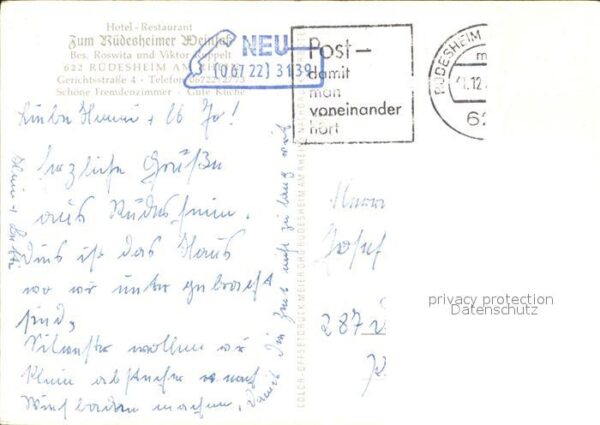 Hotel-Restaurant
Zum Rüdesheimer Weinfaß
Bes. Roswita und Viktor Ruppelt
622 RÜDESHEIM AM RHEIN
Gerichtsstraße 4 - Telefon 06722/2773
Schöne Fremdenzimmer - Gute Küche
NEU
(06722) 3139
Post-
damit
man
voneinander
hört
RÜDESHEIM
.12.
62
Liebe + Jo!
herzliche Grüße
aus Rüdesheim.
Dies ist das Haus
wo wir untergebracht
sind.
Silvester wollen wir
klein abstecher nach
Wiesbaden machen.
Damit die Zeit nicht zu lang wird
Herrn
Josef
287
COLOR-OFFSETDRUCK MEIER OHG RÜDESHEIM AM RHEIN
privacy protection
Datenschutz